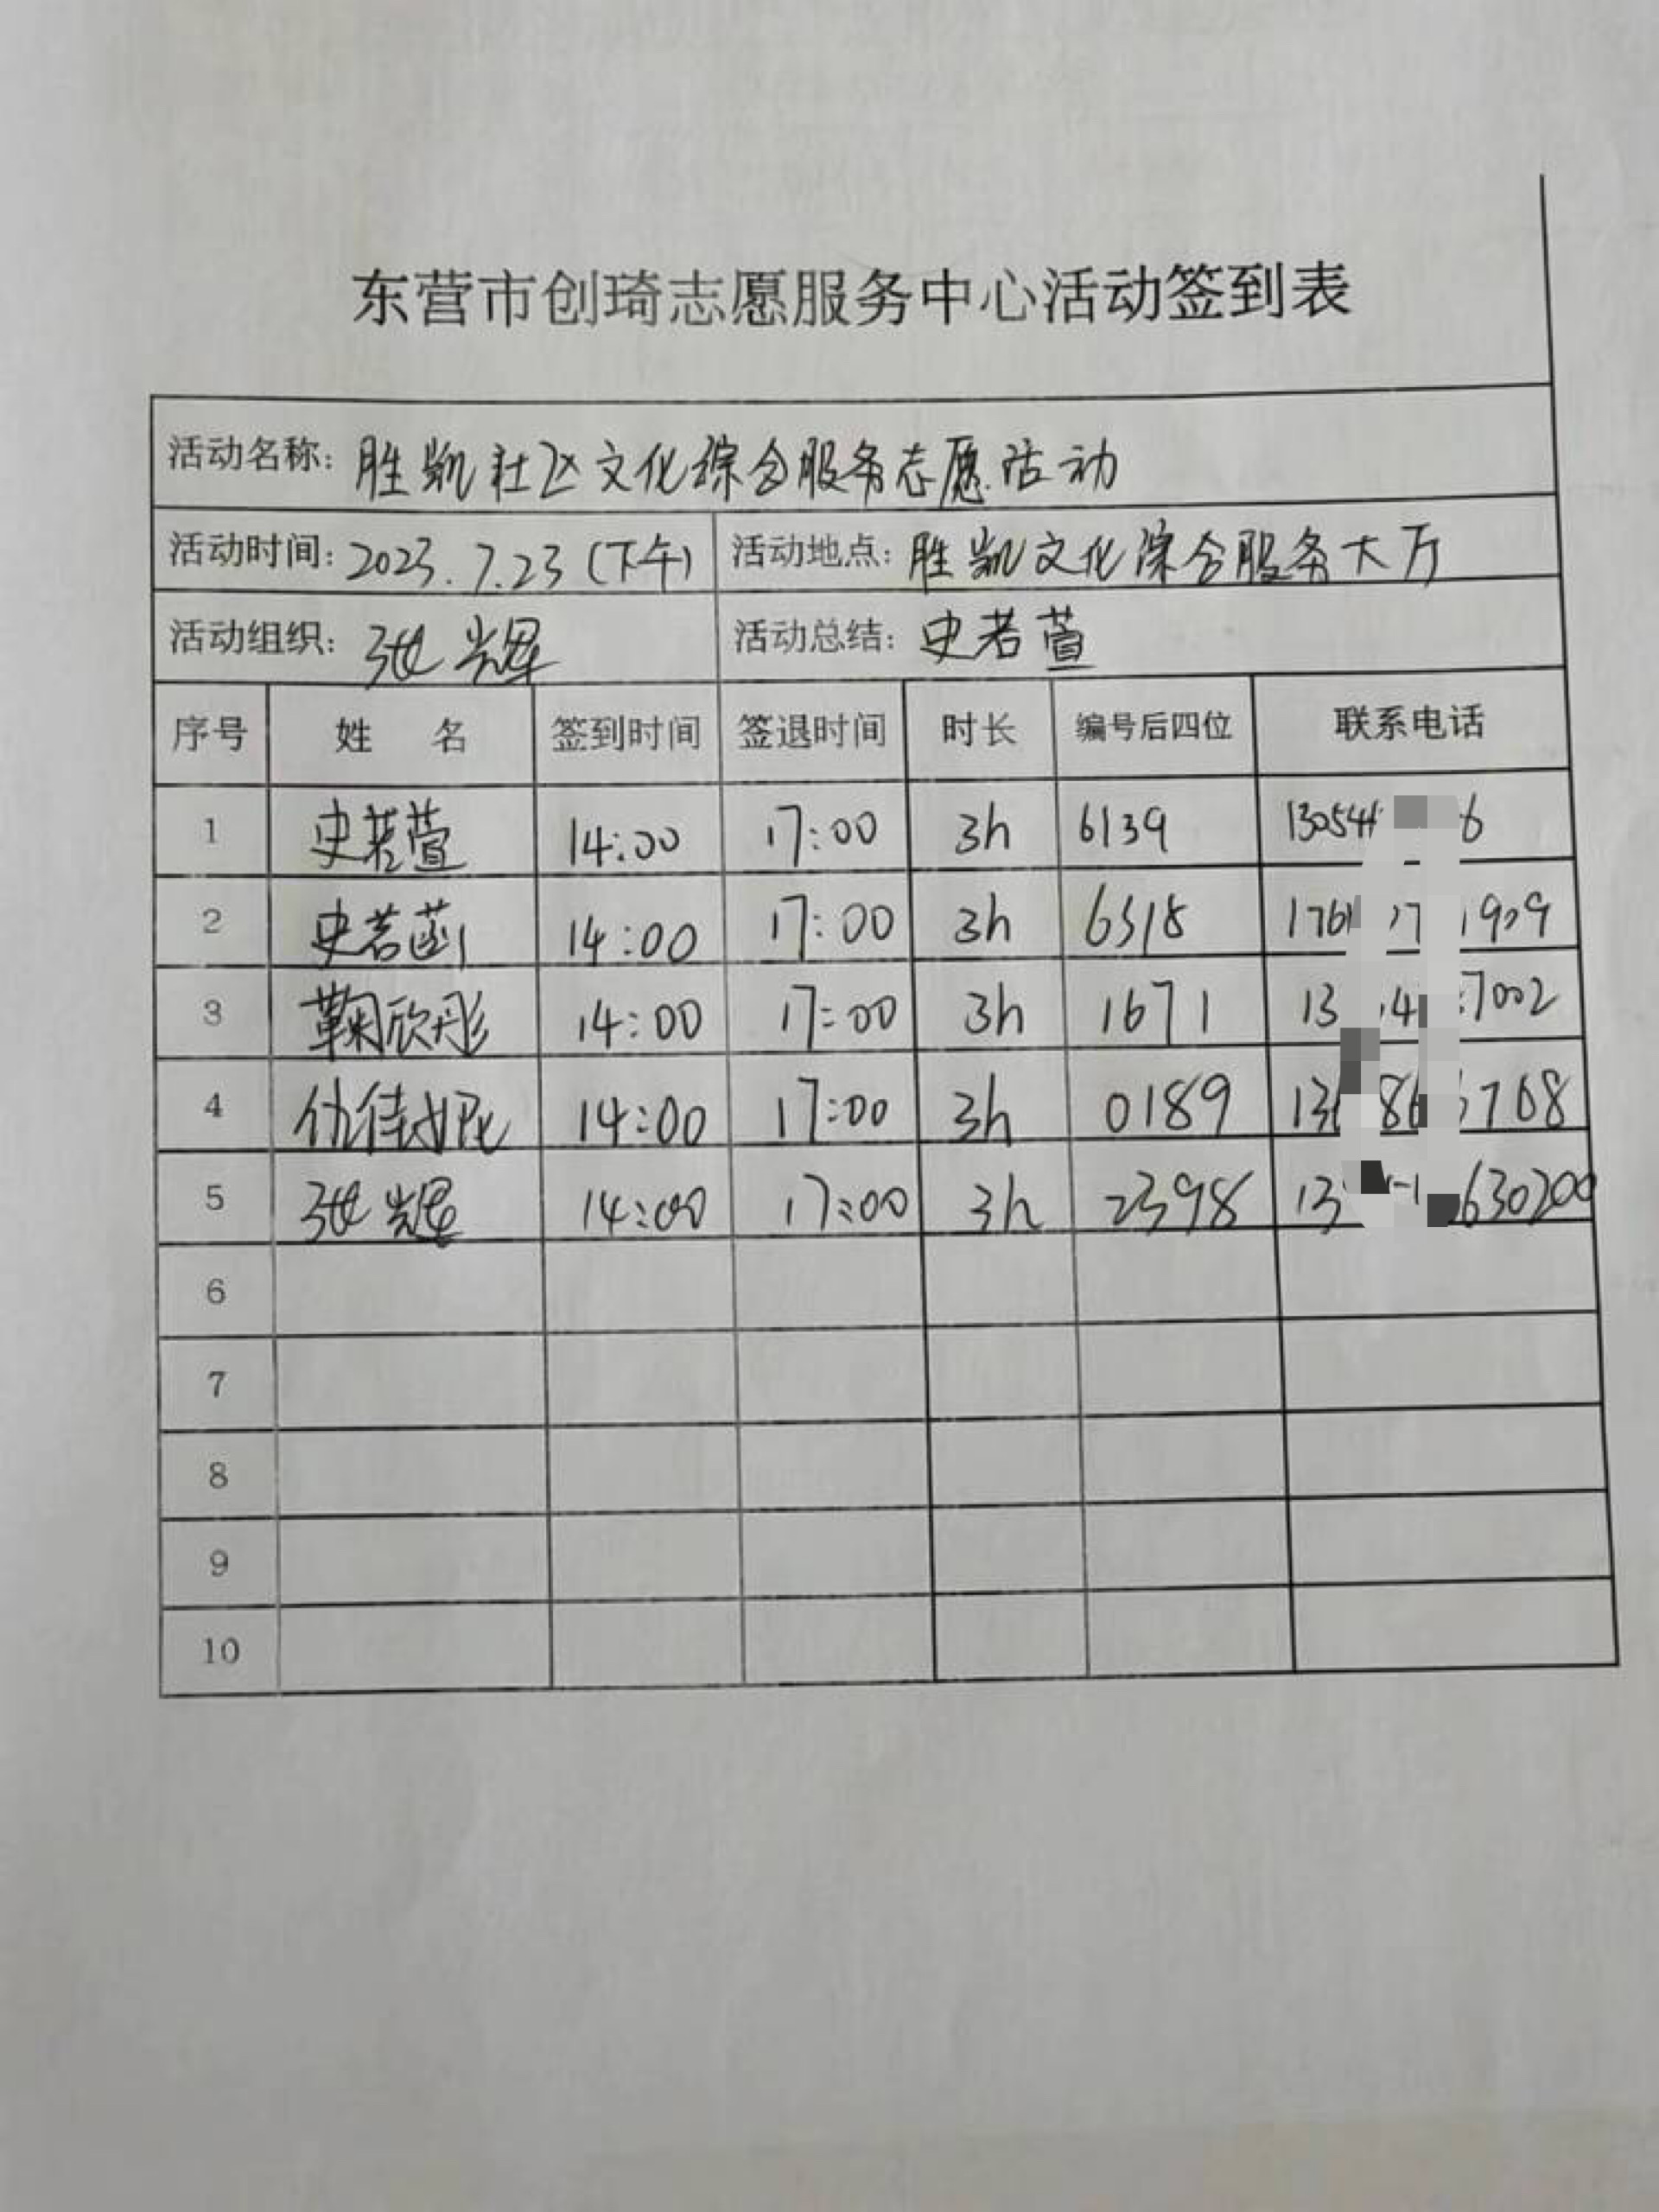 东营市创琦志愿服务中心活动签到表
活动名称：胜凯社区文化综合服务志愿活动
活动时间：2023.7.23（下午） 活动地点：胜凯文化综合服务大厅
活动组织：张光辉 活动总结：史若萱
序号 姓 名 签到时间 签退时间 时长 编号后四位 联系电话
1 史若萱 14:00 17:00 3h 6139
2 史若菡 14:00 17:00 3h 6318
3 鞠欣彤 14:00 17:00 3h 1671
4 仇佳妮 14:00 17:00 3h 0189
5 张光辉 14:00 17:00 3h 2398
6
7
8
9
10